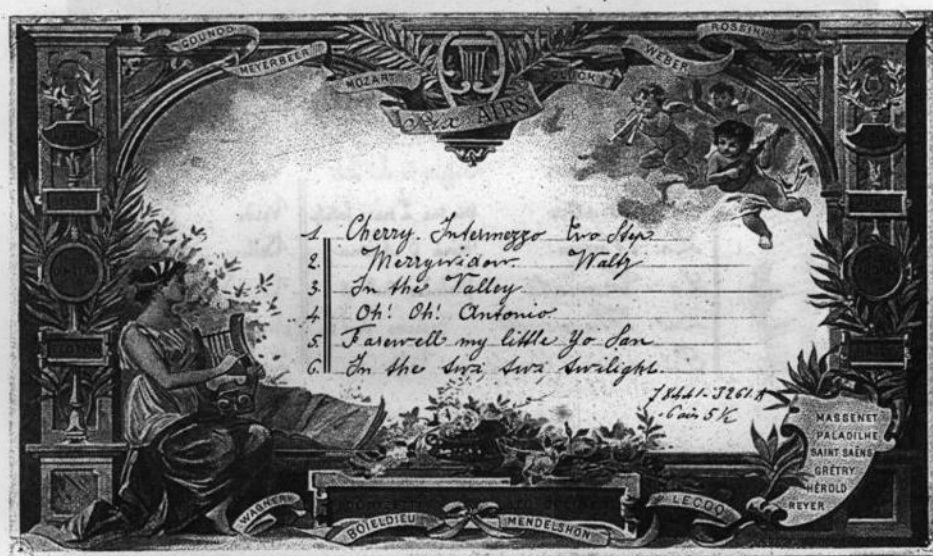 GOUNOD
MEYERBEER
MOZART
GLUCK
WEBER
ROSSINI
Six AIRS
1 Cherry. Intermezzo two Step
2. Merrywidow. Waltz
3. In the Valley
4 Oh! Oh! Antonio
5. Farewell my little Yo San
6. In the twi, twi, twilight.
MASSENET
PALADILHE
SAINT SAËNS
GRÉTRY
HÉROLD
REYER
WAGNER
BOIELDIEU
MENDELSHON
LECOQ